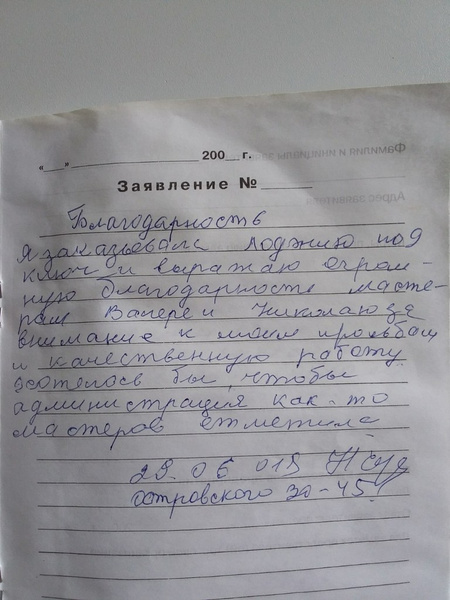 «___»____________________200__ г.
Заявление №______
Благодарность
Я заказывала лоджию под
ключ и выражаю огром-
ную благодарность масте-
рам Валере и Николаю за
внимание к моим просьбам
и качественную работу.
хотелось бы, чтобы
администрация как-то
мастеров отметила
29.06 015
островского 30-45